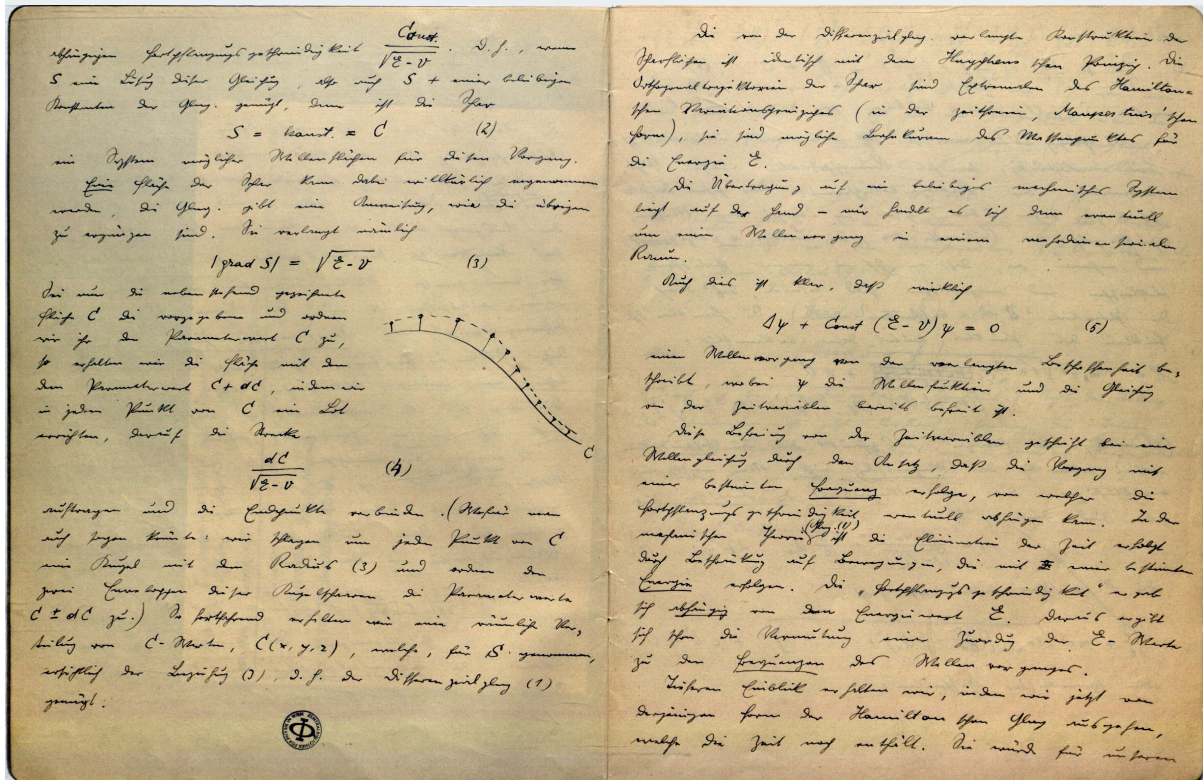 abhängigen Fortpflanzungsgeschwindigkeit Const./√(E-V). D.h., wenn
S eine Lösung dieser Gleichung, also auch S + einer beliebigen
Konstanten der Glchg. genügt, dann ist die Schar
S = konst. = C (2)
ein System möglicher Wellenflächen für diesen Vorgang.
Eine Fläche der Schar kann dabei willkürlich angenommen
werden, die Glchg. gibt eine Anweisung, wie die übrigen
zu ergänzen sind. Sie verlangt nämlich
|grad S| = √(E-V) (3)
Sei nun die nebenstehend gezeichnete
Fläche C die vorgegebene und ordnen
wir ihr den Parameterwert C zu,
so erhalten wir die Fläche mit dem
dem Parameterwert C+dC, indem wir
in jedem Punkt von C ein Lot
errichten, darauf die Strecke
dC/√(E-V) (4)
C
auftragen und die Endpunkte verbinden. (Wofür man
auch sagen könnte: wir schlagen um jeden Punkt von C
eine Kugel mit dem Radius (3) und ordnen den
zwei Enveloppen dieser Kugelscharen die Parameterwerte
C ± dC zu.) So fortfahrend erhalten wir eine räumliche Ver-
teilung von C-Werten, C(x,y,z), welche, für S genommen,
ersichtlich der Beziehung (3), d.h. der Differenzialglchg (1)
genügt.
Die von der Differenzialglchg. verlangte Konstruktion der
Scharflächen ist identisch mit dem Huyghens'schen Prinzip. Die
Orthogonaltrajektorien der Schar sind Extremalen des Hamilton-
schen Variationsprinzipes (in der zeitfreien, Maupertuis'schen
Form), sie sind mögliche Bahnkurven des Massenpunktes für
die Energie E.
Die Übertragung auf ein beliebiges mechanisches System
liegt auf der Hand – nur handelt es sich dann eventuell
um einen Wellenvorgang in einem mehrdimensionalen
Raum.
Auch dies ist klar, daß wirklich
Δψ + Const (E-V)ψ = 0 (5)
einen Wellenvorgang von der verlangten Beschaffenheit be-
schreibt, wobei ψ die Wellenfunktion und die Gleichung
von der Zeitvariablen bereits befreit ist.
Diese Befreiung von der Zeitvariablen geschieht bei einer
Wellengleichung durch den Ansatz, daß der Vorgang mit
einer bestimmten Frequenz erfolge, von welcher die
Fortpflanzungsgeschwindigkeit eventuell abhängen kann. In der
mechanischen Theorie (Glchg. (1)) ist die Elimination der Zeit erfolgt
durch Beschränkung auf Bewegungen, die mit einer bestimmten
Energie erfolgen. Die „Fortpflanzungsgeschwindigkeit" ergab
sich abhängig von dem Energiewert E. Daraus ergibt
sich schon die Vermutung einer Zuordnung der E-Werte
zu den Frequenzen des Wellenvorganges.
Tieferen Einblick erhalten wir, indem wir jetzt von
derjenigen Form der Hamilton'schen Glchg ausgehen,
welche die Zeit noch enthält. Sie würde für unseren